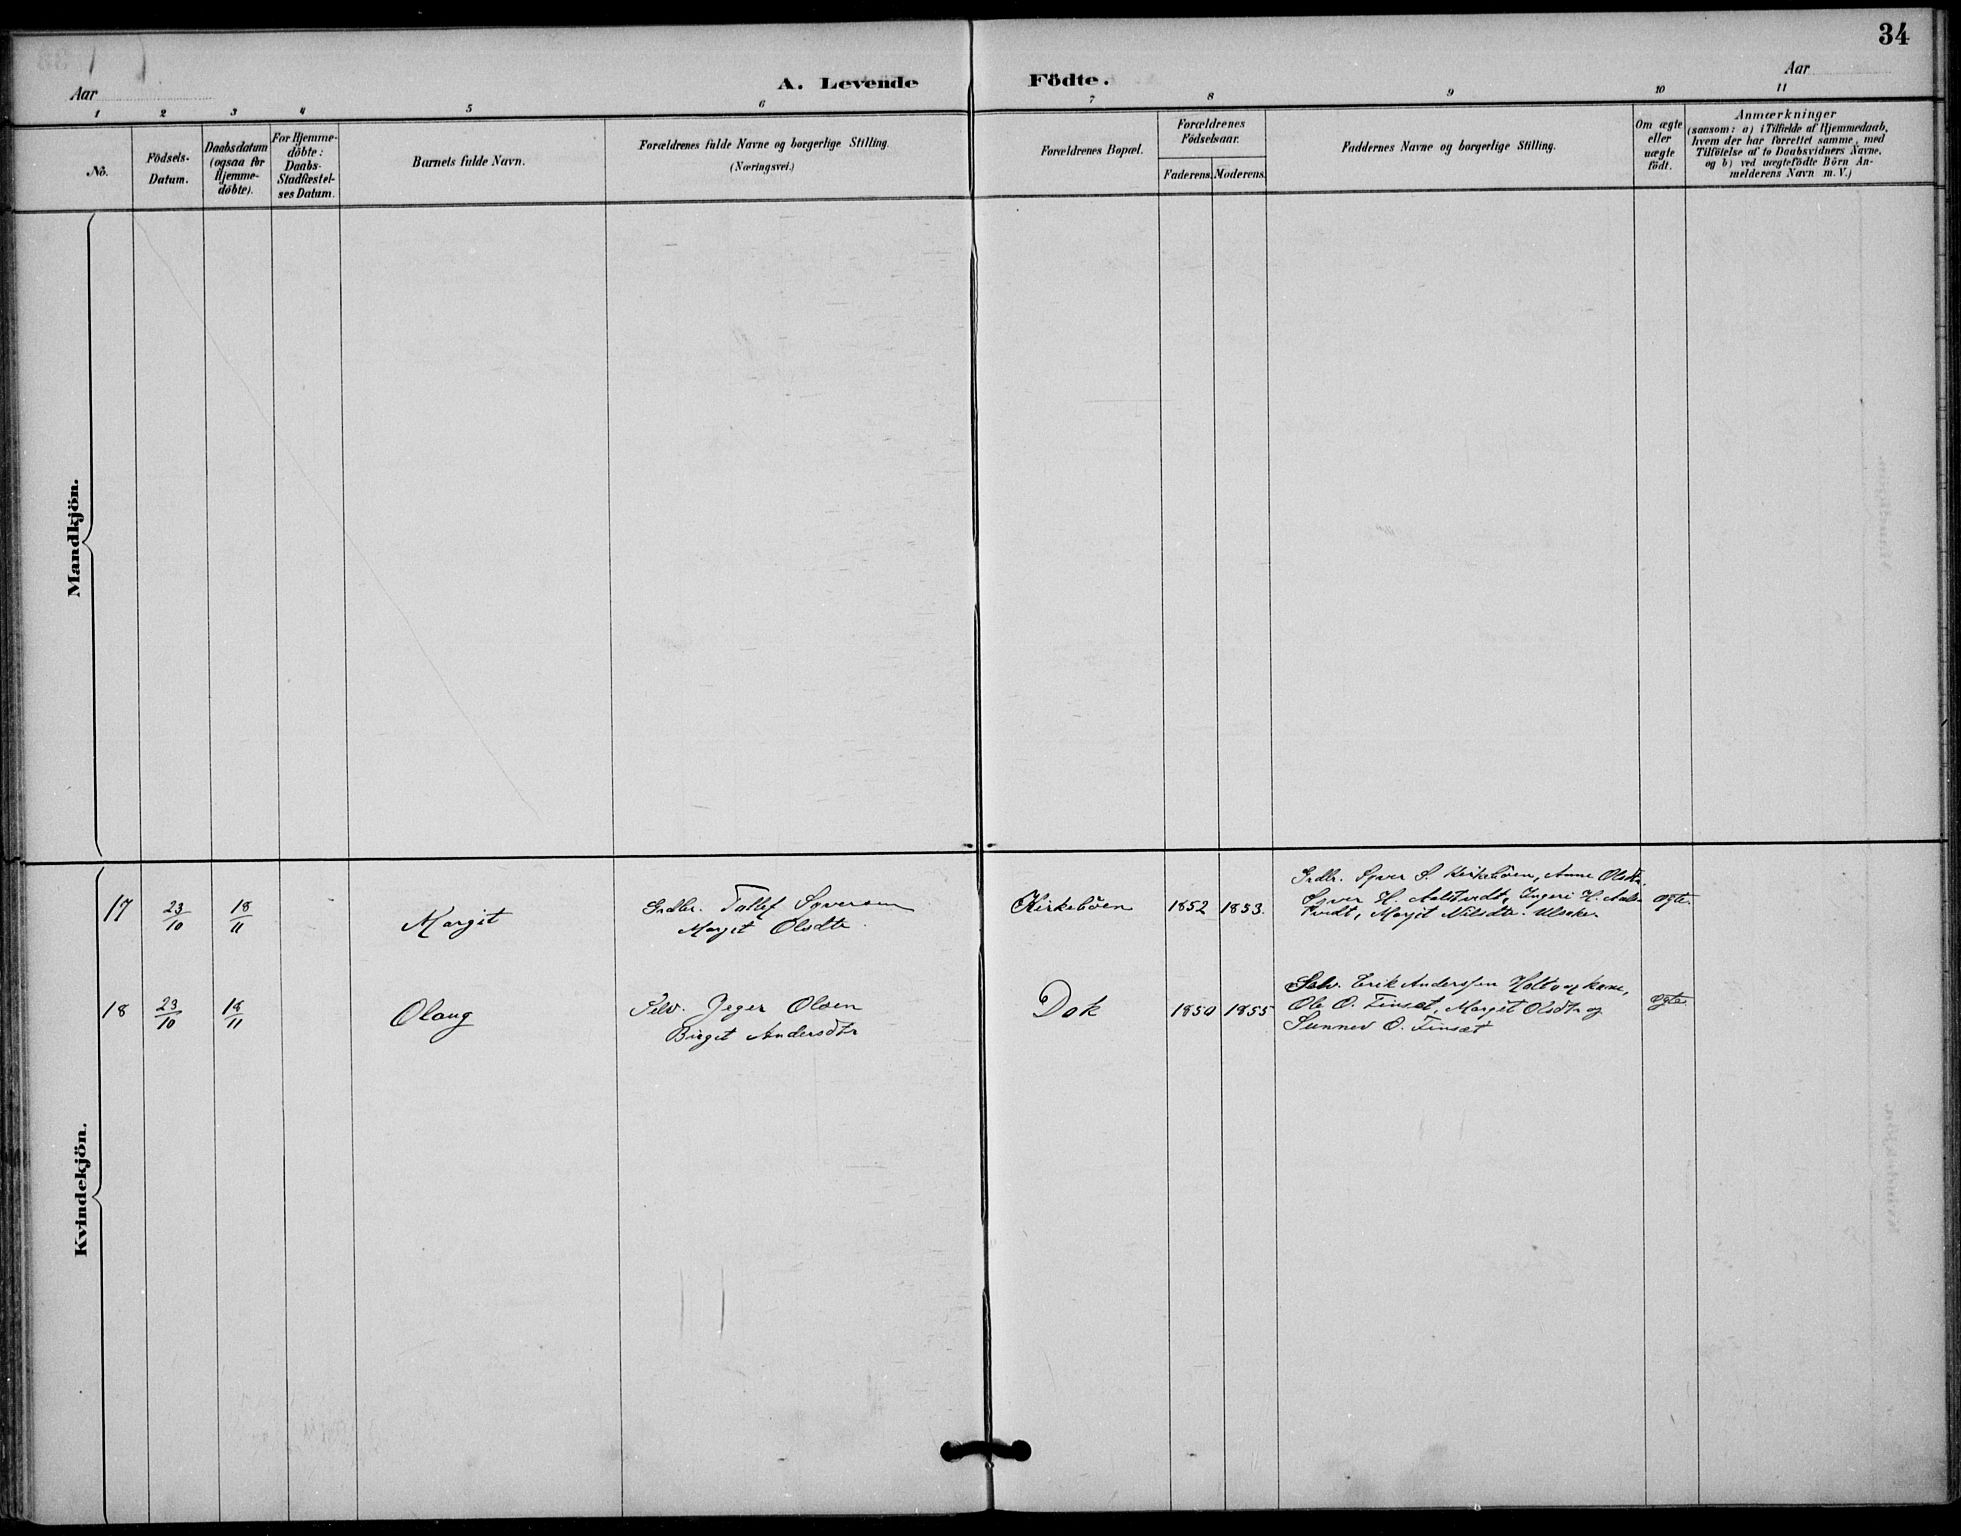 34
Aar
A. Levende Födte.
Aar
1 2 3 4 5 6 7 8 9 10 11
No.
Födsels-
Datum.
Daabsdatum
(ogsaa for
Hjemme-
döbte).
For Hjemme-
döbte:
Daabs-
Stadfæstel-
ses Datum.
Barnets fulde Navn.
Forældrenes fulde Navne og borgerlige Stilling.
(Næringsvei.)
Forældrenes Bopæl.
Forældrenes
Födselsaar.
Faderens. Moderens.
Faddernes Navne og borgerlige Stilling.
Om ægte
eller
uægte
födt.
Anmærkninger
(saasom: a) i Tilfælde af Hjemmedaab,
hvem der har forrettet samme, med
Tilföielse af to Daabsvidners Navne,
og b) ved uægtefödte Börn An-
melderens Navn m. V.)
Mandkjön.
Kvindekjön.
17
23/10
18/11
Margit
Tollef Syversen
Margit Olsdtr.
Kirkebøen
1852
1853.
Syver S. Kirkebøen, Anne Olsdtr.
Syver H. Ingeri H.
Margit Nilsdtr. Ulsaker
ægte.
18
23/10
18/11
Olaug
Selv. Olsen
Birgit Andersdtr
Dok
1850
1855
Selv. Erik Anderssen og kone,
Ole O. Finset, Margit Olsdtr og
Sunnev O. Finset
ægte.